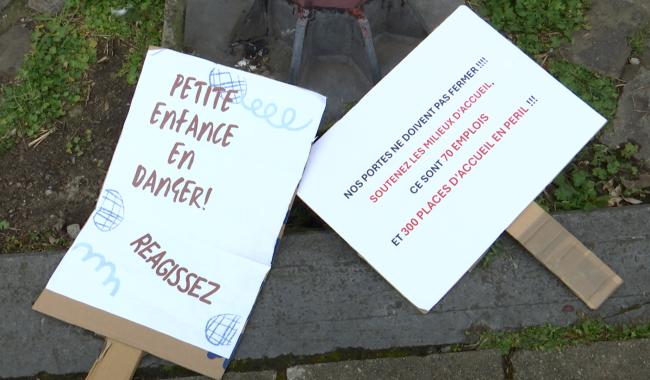 PETITE
ENFANCE
EN
DANGER!
REAGISSEZ
NOS PORTES NE DOIVENT PAS FERMER !!!!
SOUTENEZ LES MILIEUX D'ACCUEIL,
CE SONT 70 EMPLOIS
ET 300 PLACES D'ACCUEIL EN PERIL !!!